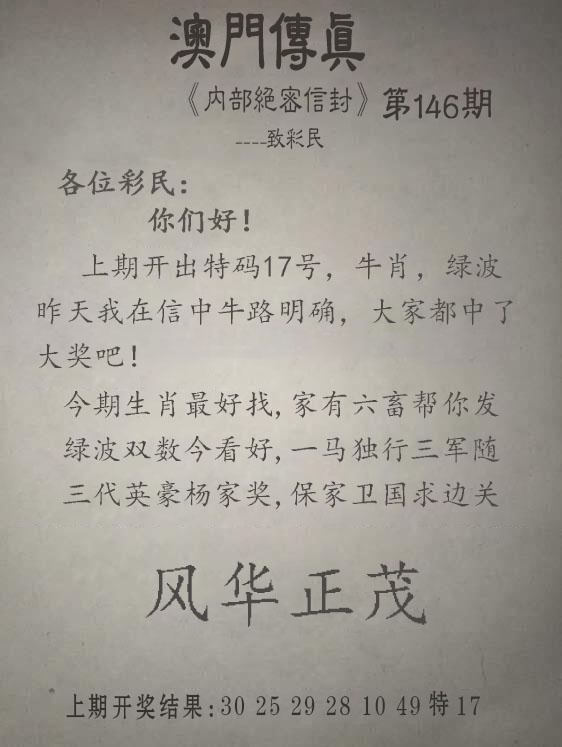 澳門傳真
《内部絕密信封》第146期
----致彩民
各位彩民：
你们好！
上期开出特码17号，牛肖，绿波
昨天我在信中牛路明确，大家都中了
大奖吧！
今期生肖最好找,家有六畜帮你发
绿波双数今看好,一马独行三军随
三代英豪杨家奖,保家卫国求边关
风华正茂
上期开奖结果:30 25 29 28 10 49 特 17